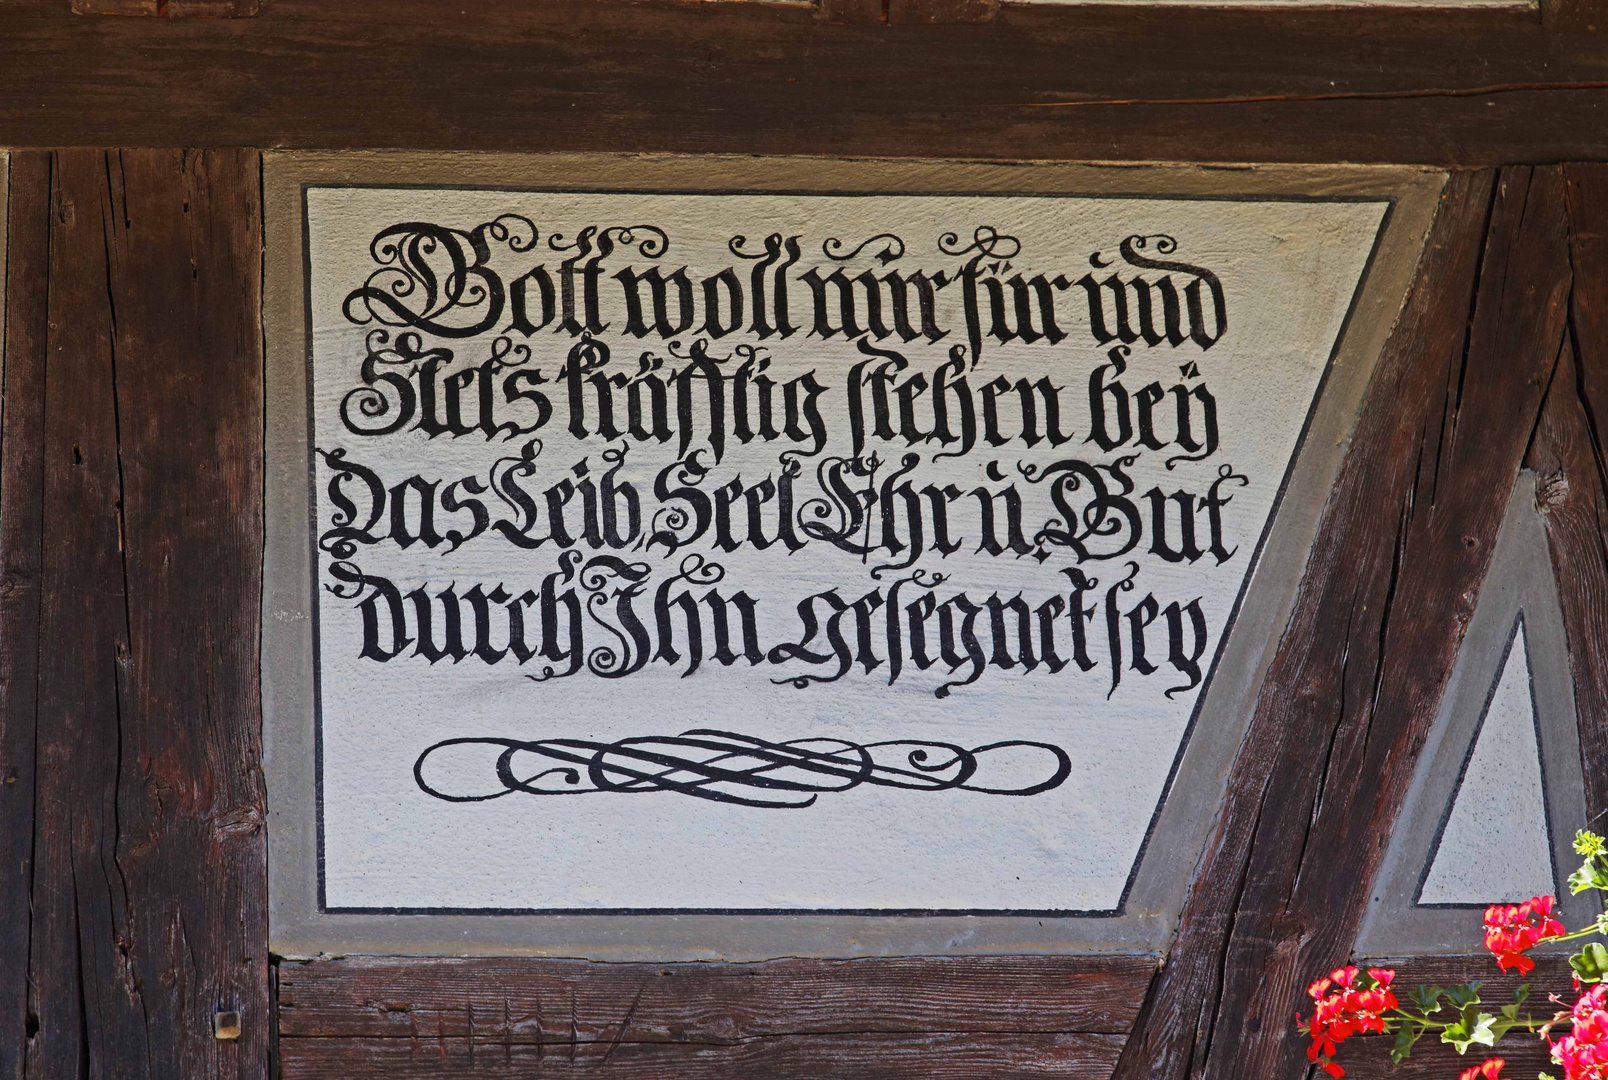 Gott woll mir für und
Stets kräfftig stehen bey
Das Leib, Seel Ehr u. Gut
durch Ihn gesegnet sey